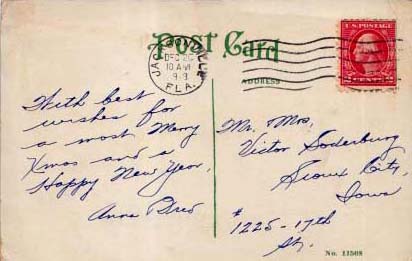 Post Card
JACKSONVILLE
DEC 20
10 AM
FLA.
U.S. POSTAGE
2 CENTS 2
ADDRESS
With best
wishes for
a most Merry
Xmas and a
Happy New Year,
Anne
Mr. Mrs.
Victor Soderburg
Sioux City,
Iowa
# 1225 - 17th
St.
No. 11508